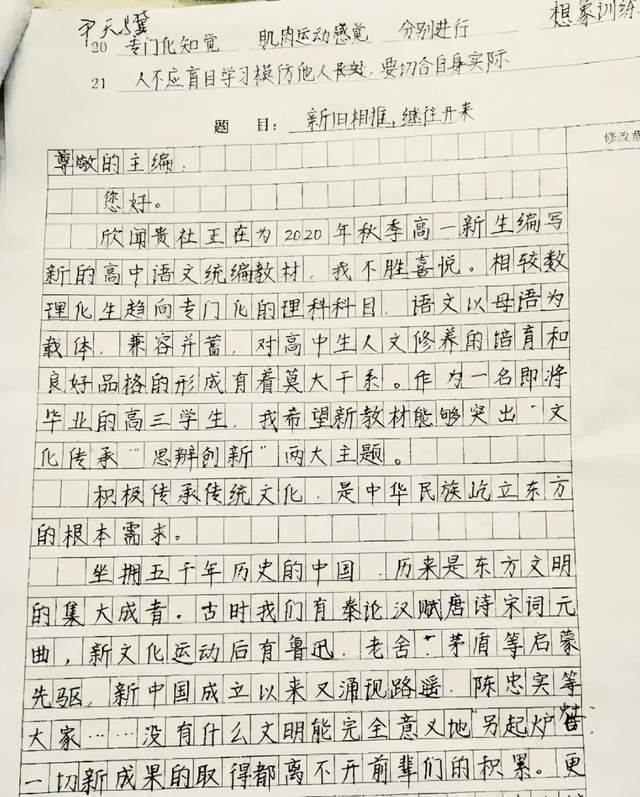 尹天骥
想象训练
20 专门化知觉 肌肉运动感觉 分别进行
21 人不应盲目学习模仿他人长处,要切合自身实际
题 目: 新旧相推,继往开来
尊敬的主编:
您好。
欣闻贵社正在为2020年秋季高一新生编写
新的高中语文统编教材,我不胜喜悦。相较数
理化生趋向专门化的理科科目,语文以母语为
载体,兼容并蓄,对高中生人文修养的培育和
良好品格的形成有着莫大干系。作为一名即将
毕业的高三学生,我希望新教材能够突出“文
化传承”“思辨创新”两大主题。
积极传承传统文化,是中华民族屹立东方
的根本需求。
坐拥五千年历史的中国,历来是东方文明
的集大成者。古时我们有秦论汉赋唐诗宋词元
曲,新文化运动后有鲁迅、老舍、茅盾等启蒙
先驱,新中国成立以来又涌现路遥、陈忠实等
大家……没有什么文明能完全意义地“另起炉灶”
一切新成果的取得都离不开前辈们的积累。更